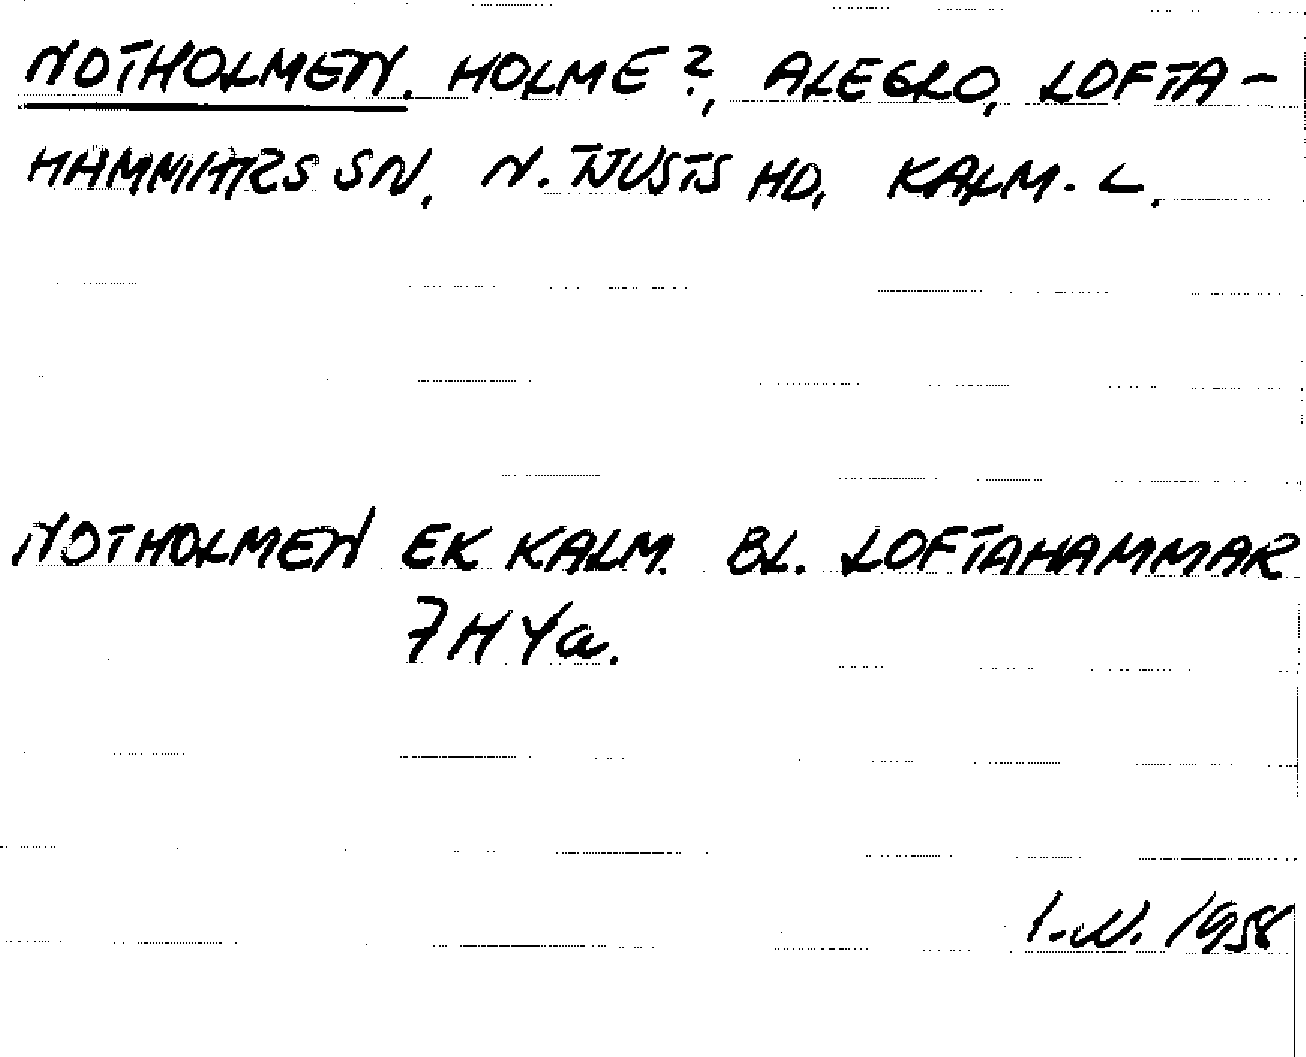 NOTHOLMEN. HOLME?, ALEGLO, LOFTA-
HAMMARS SN. N. TJUSTS HD, KALM. L.
NOTHOLMEN EK KALM. BL. LOFTAHAMMAR
7H Ya.
I.N. 1958